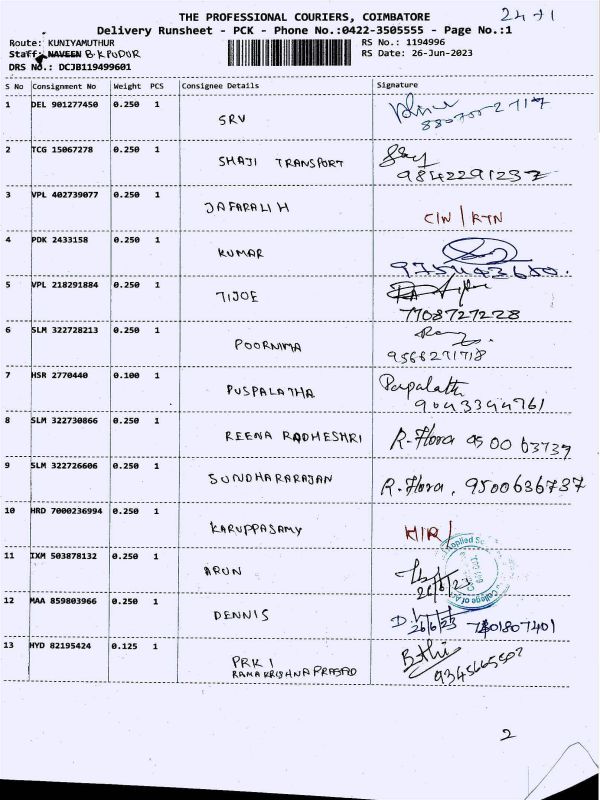 THE PROFESSIONAL COURIERS, COIMBATORE
24+1
Delivery Runsheet - PCK - Phone No.:0422-3505555 - Page No.:1
Route: KUNIYAMUTHUR RS No.: 1194996
Staff: NAVEEN B.K PUDUR RS Date: 26-Jun-2023
DRS No.: DCJB119499601
S No Consignment No Weight PCS Consignee Details Signature
1 DEL 901277450 0.250 1 SRV
2 TCG 15067278 0.250 1 SHAJI TRANSPORT
9842291237
3 VPL 402739077 0.250 1 JAFARALI H CIN / RTN
4 PDK 2433158 0.250 1 KUMAR
5 VPL 218291884 0.250 1 TIJOE
7708727228
6 SLM 322728213 0.250 1 POORNIMA
9566271718
7 HSR 2770440 0.100 1 PUSPALATHA Puspalatha
9043394761
8 SLM 322730866 0.250 1 REENA RADHESHRI R. Flora 9500 63737
9 SLM 322726606 0.250 1 SUNDHARARAJAN R. Flora, 9500636737
10 HRD 7000236994 0.250 1 KARUPPASAMY H/R/
11 IXM 503878132 0.250 1 ARUN
26/6/23
12 MAA 859803966 0.250 1 DENNIS
26/6/23 7401807401
13 HYD 82195424 0.125 1 PRK 1
RAMAKRISHNA PRASAD
9345665502
2